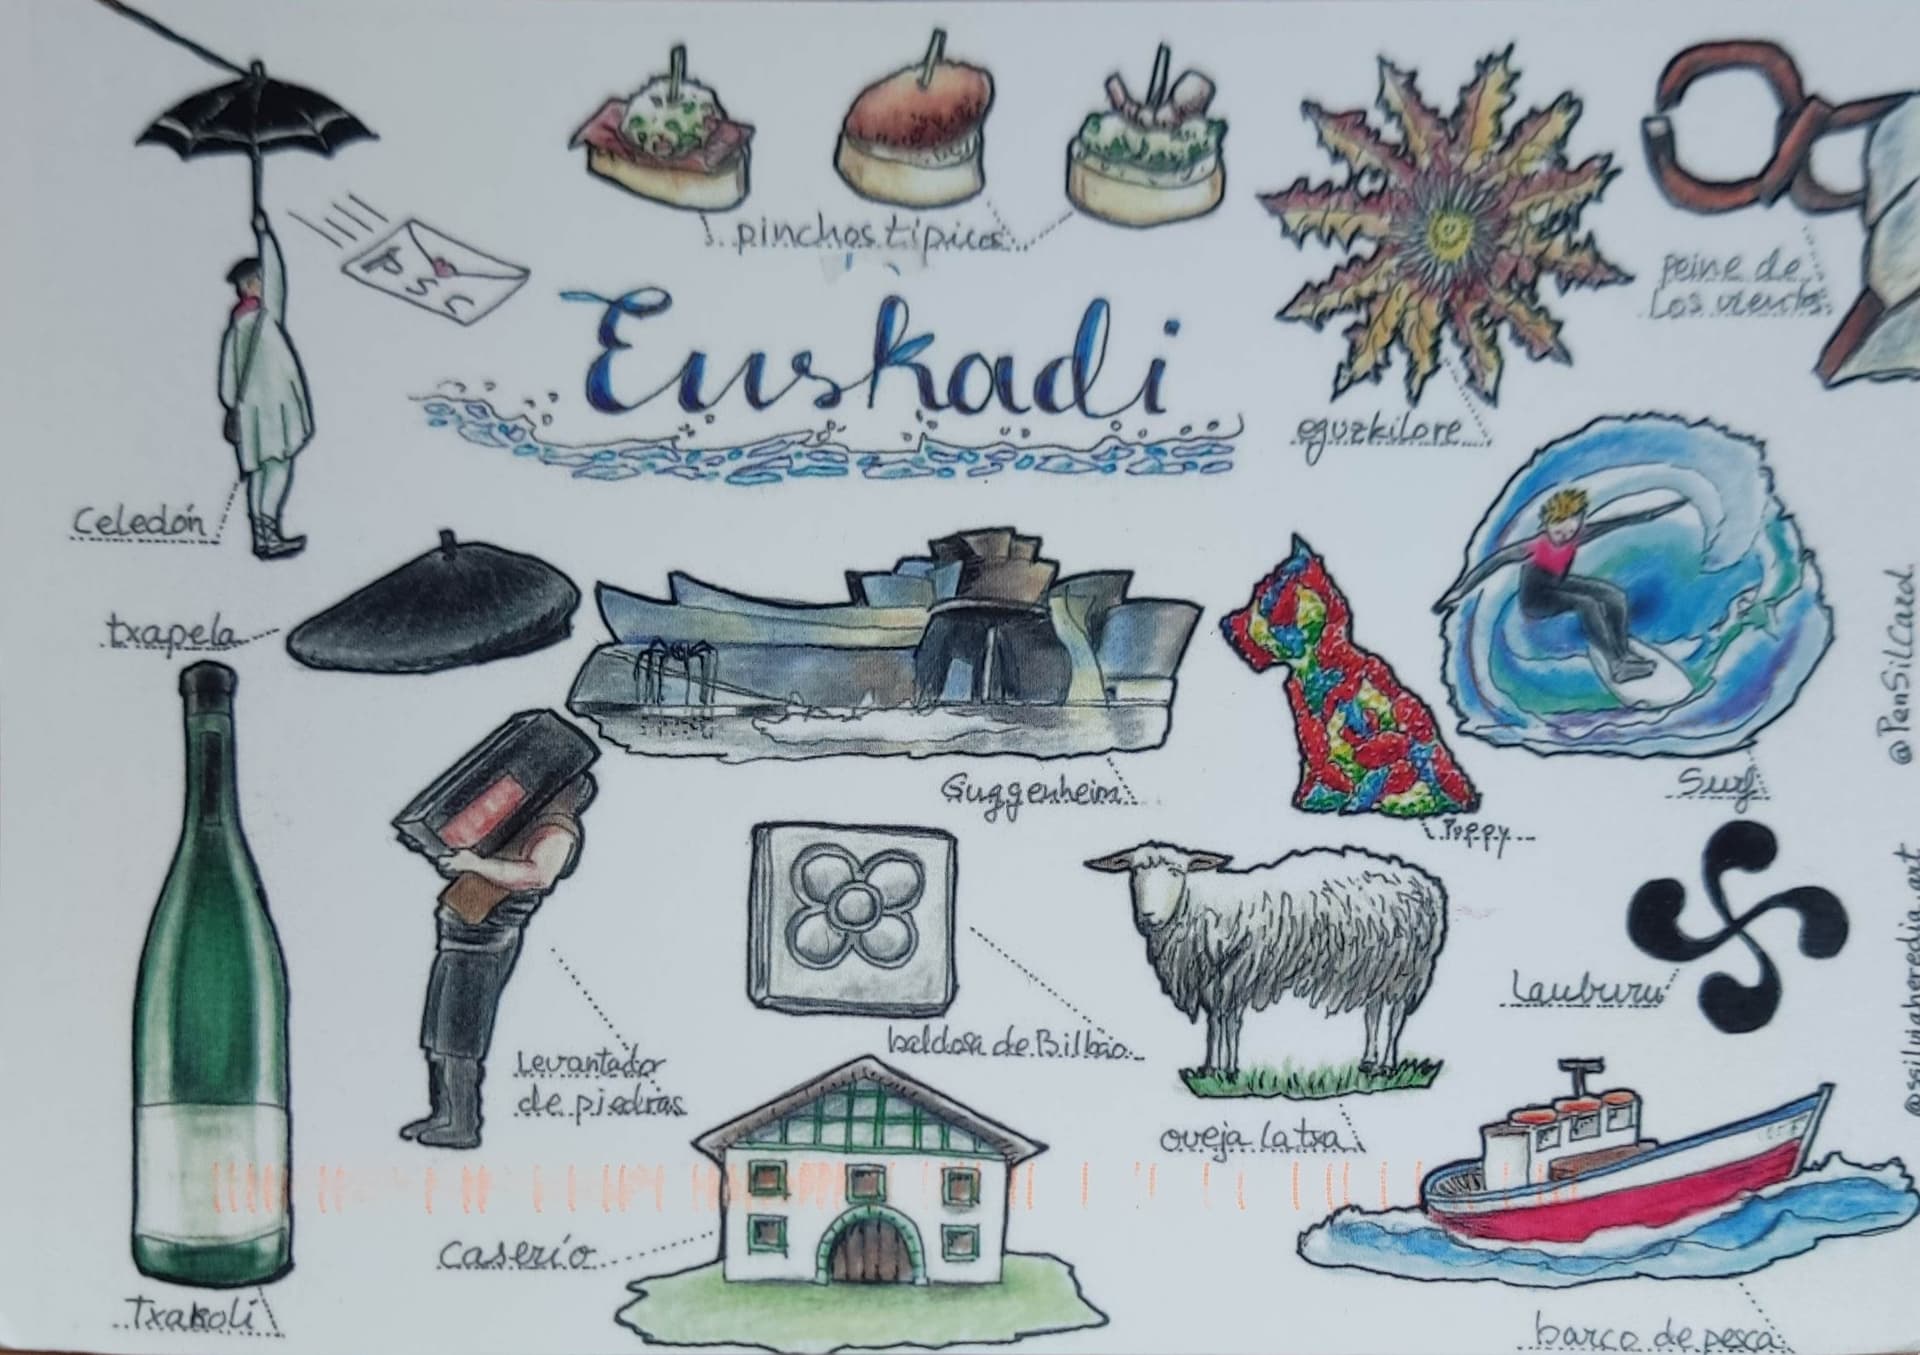 pinchos típicos
PSC
Euskadi
peine de
los vientos
eguzkilore
Celedón
txapela
Guggenheim
Puppy
Surf
@PenSilCard.
Lauburu
Levantador
de piedras
baldosa de Bilbao
oveja latxa
@ssilviaheredia.art
caserío
Txakoli
barco de pesca